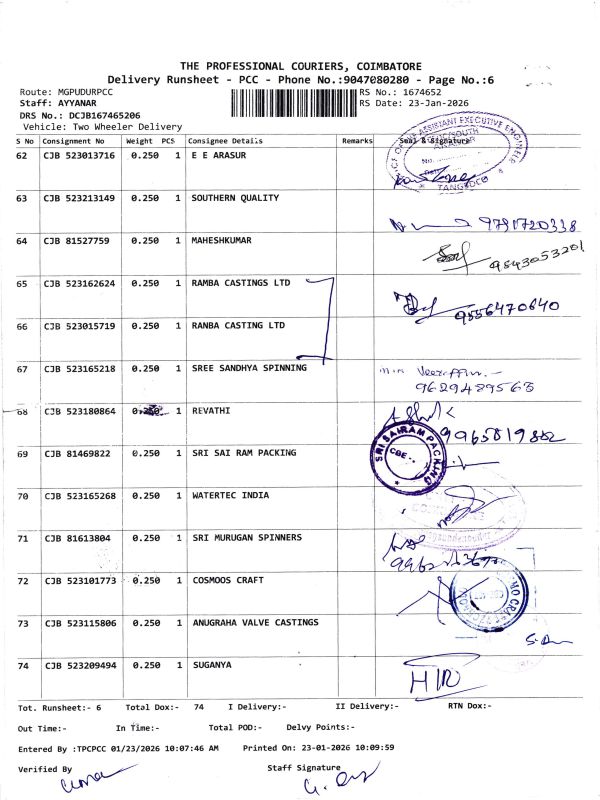 THE PROFESSIONAL COURIERS, COIMBATORE
Delivery Runsheet - PCC - Phone No.:9047080280 - Page No.:6
Route: MGPUDURPCC RS No.: 1674652
Staff: AYYANAR RS Date: 23-Jan-2026
DRS No.: DCJB167465206
Vehicle: Two Wheeler Delivery
S No Consignment No Weight PCS Consignee Details Remarks Seal & Signature
62 CJB 523013716 0.250 1 E E ARASUR
ASSISTANT EXECUTIVE ENGINEER
TANGEDCO
63 CJB 523213149 0.250 1 SOUTHERN QUALITY
9791720338
64 CJB 81527759 0.250 1 MAHESHKUMAR
9543053201
65 CJB 523162624 0.250 1 RAMBA CASTINGS LTD
9556470640
66 CJB 523015719 0.250 1 RANBA CASTING LTD
67 CJB 523165218 0.250 1 SREE SANDHYA SPINNING
9629489563
68 CJB 523180864 0.250 1 REVATHI
9965819882
69 CJB 81469822 0.250 1 SRI SAI RAM PACKING
SRI SAIRAM PACKING
CBE
70 CJB 523165268 0.250 1 WATERTEC INDIA
71 CJB 81613804 0.250 1 SRI MURUGAN SPINNERS
72 CJB 523101773 0.250 1 COSMOOS CRAFT
73 CJB 523115806 0.250 1 ANUGRAHA VALVE CASTINGS
74 CJB 523209494 0.250 1 SUGANYA
Tot. Runsheet:- 6 Total Dox:- 74 I Delivery:- II Delivery:- RTN Dox:-
Out Time:- In Time:- Total POD:- Delvy Points:-
Entered By :TPCPCC 01/23/2026 10:07:46 AM Printed On: 23-01-2026 10:09:59
Verified By Staff Signature